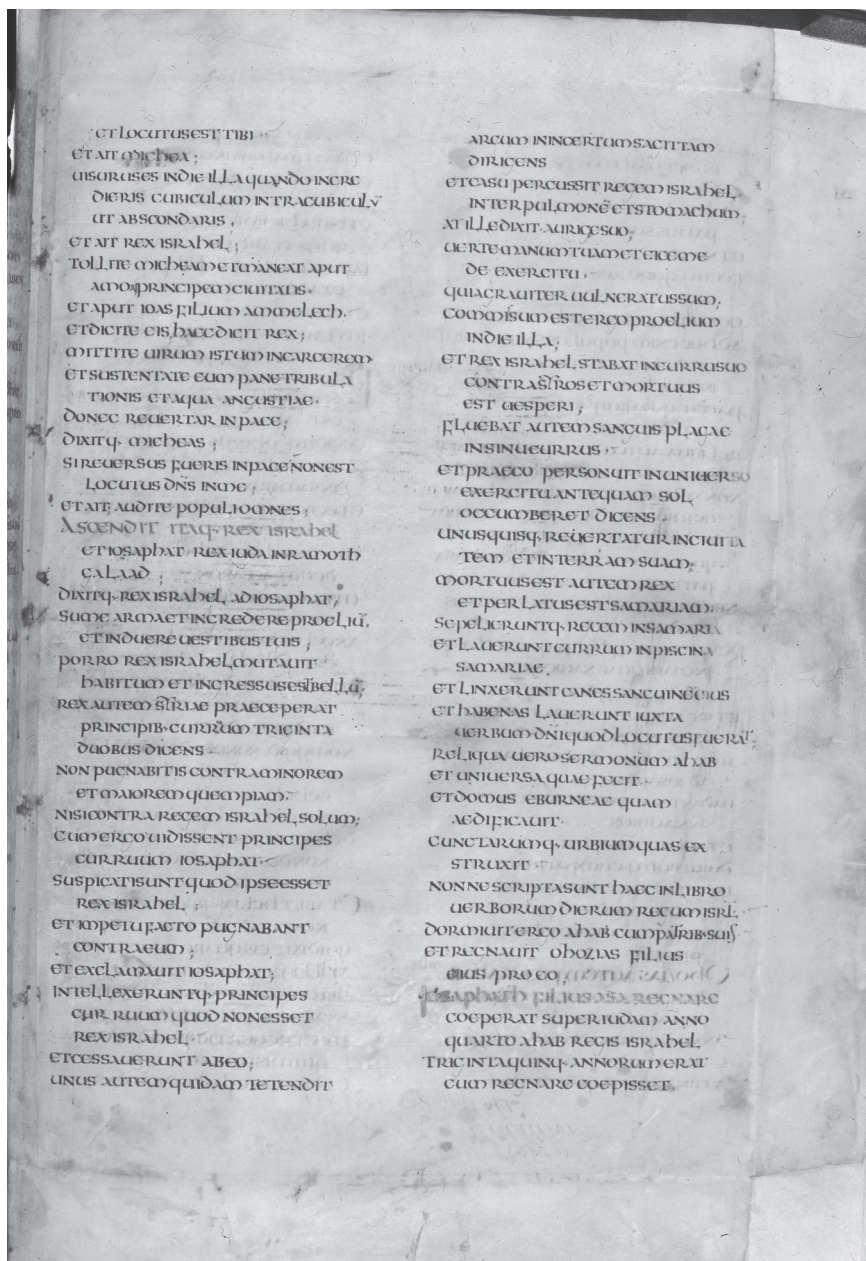 ET LOCUTUS EST TIBI
ET AIT MICHEA;
UISURUS ES IN DIE ILLA QUANDO INGRE
DIERIS CUBICULUM INTRA CUBICULŪ
UT ABSCONDARIS.
ET AIT REX ISRAHEL;
TOLLITE MICHEAM ET MANEAT APUT
AMON PRINCIPEM CIUITATIS·
ET APUT IOAS FILIUM AMMELECH·
ET DICITE EIS, HAEC DICIT REX;
MITTITE UIRUM ISTUM IN CARCEREM
ET SUSTENTATE EUM PANE TRIBULA
TIONIS ET AQUA ANGUSTIAE·
DONEC REUERTAR IN PACE;
DIXITQ· MICHEAS;
SI REUERSUS FUERIS IN PACE NON EST
LOCUTUS DN̄S IN ME;
ET AIT; AUDITE POPULI OMNES;
ASCENDIT ITAQ· REX ISRAHEL
ET IOSAPHAT REX IUDA IN RAMOTH
GALAAD;
DIXITQ· REX ISRAHEL AD IOSAPHAT;
SUME ARMA ET INGREDERE PROELIŪ,
ET INDUERE UESTIBUS TUIS;
PORRO REX ISRAHEL MUTAUIT
HABITUM ET INGRESSUS EST BELLŪ;
REX AUTEM SIRIAE PRAECEPERAT
PRINCIPIB· CURRUUM TRIGINTA
DUOBUS DICENS
NON PUGNABITIS CONTRA MINOREM
ET MAIOREM QUEMPIAM·
NISI CONTRA REGEM ISRAHEL SOLUM;
CUM ERGO UIDISSENT PRINCIPES
CURRUUM IOSAPHAT·
SUSPICATI SUNT QUOD IPSE ESSET
REX ISRAHEL;
ET IMPETU FACTO PUGNABANT
CONTRA EUM;
ET EXCLAMAUIT IOSAPHAT;
INTELLEXERUNTQ· PRINCIPES
CURRUUM QUOD NON ESSET
REX ISRAHEL·
ET CESSAUERUNT AB EO;
UNUS AUTEM QUIDAM TETENDIT
ARCUM IN INCERTUM SAGITTAM
DIRIGENS
ET CASU PERCUSSIT REGEM ISRAHEL
INTER PULMONĒ ET STOMACHUM;
AT ILLE DIXIT AURIGE SUO;
UERTE MANUM TUAM ET EICE ME
DE EXERCITU·
QUIA GRAUITER UULNERATUS SUM;
COMMISUM EST ERGO PROELIUM
IN DIE ILLA;
ET REX ISRAHEL STABAT IN CURRU SUO
CONTRA SIROS ET MORTUUS
EST UESPERI;
FLUEBAT AUTEM SANGUIS PLAGAE
IN SINU CURRUS·
ET PRAECO PERSONUIT IN UNIUERSO
EXERCITU ANTEQUAM SOL
OCCUMBERET DICENS·
UNUSQUISQ· REUERTATUR IN CIUITA
TEM ET IN TERRAM SUAM;
MORTUUS EST AUTEM REX
ET PERLATUS EST SAMARIAM;
SEPELIERUNTQ· REGEM IN SAMARIA
ET LAUERUNT CURRUM IN PISCINA
SAMARIAE.
ET LINXERUNT CANES SANGUINĒ EIUS
ET HABENAS LAUERUNT IUXTA
UERBUM DN̄I QUOD LOCUTUS FUERAT·
RELIQUA UERO SERMONUM AHAB
ET UNIUERSA QUAE FECIT·
ET DOMUS EBURNEAE QUAM
AEDIFICAUIT·
CUNCTARUMQ· URBIUM QUAS EX
STRUXIT·
NONNE SCRIPTA SUNT HAEC IN LIBRO
UERBORUM DIERUM REGUM ISRL
DORMIUIT ERGO AHAB CUM PATRIB· SUIS
ET REGNAUIT OHOZIAS FILIUS
EIUS PRO EO;
IOSAPHATH FILIUS ASA REGNARE
COEPERAT SUPER IUDAM ANNO
QUARTO AHAB REGIS ISRAHEL
TRIGINTA QUINQ· ANNORUM ERAT
CUM REGNARE COEPISSET.